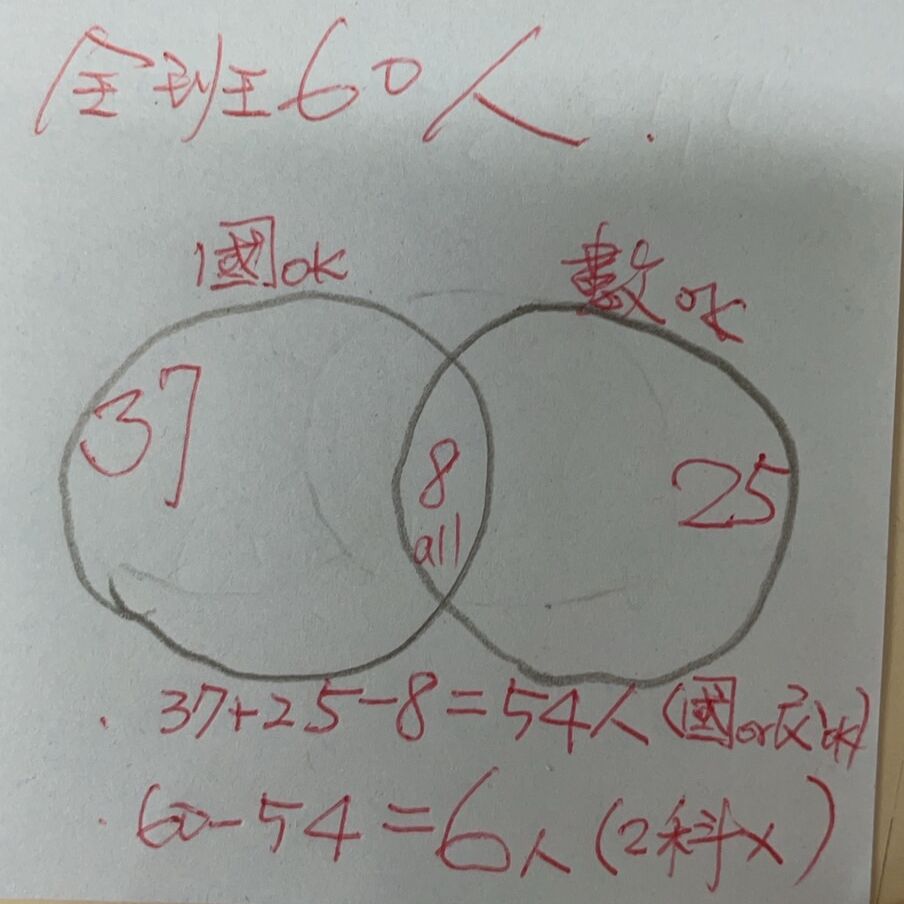 全班60人.
國ok
數ok
37
8
all
25
. 37+25-8=54人(國or ok)
. 60-54=6人(2科x)